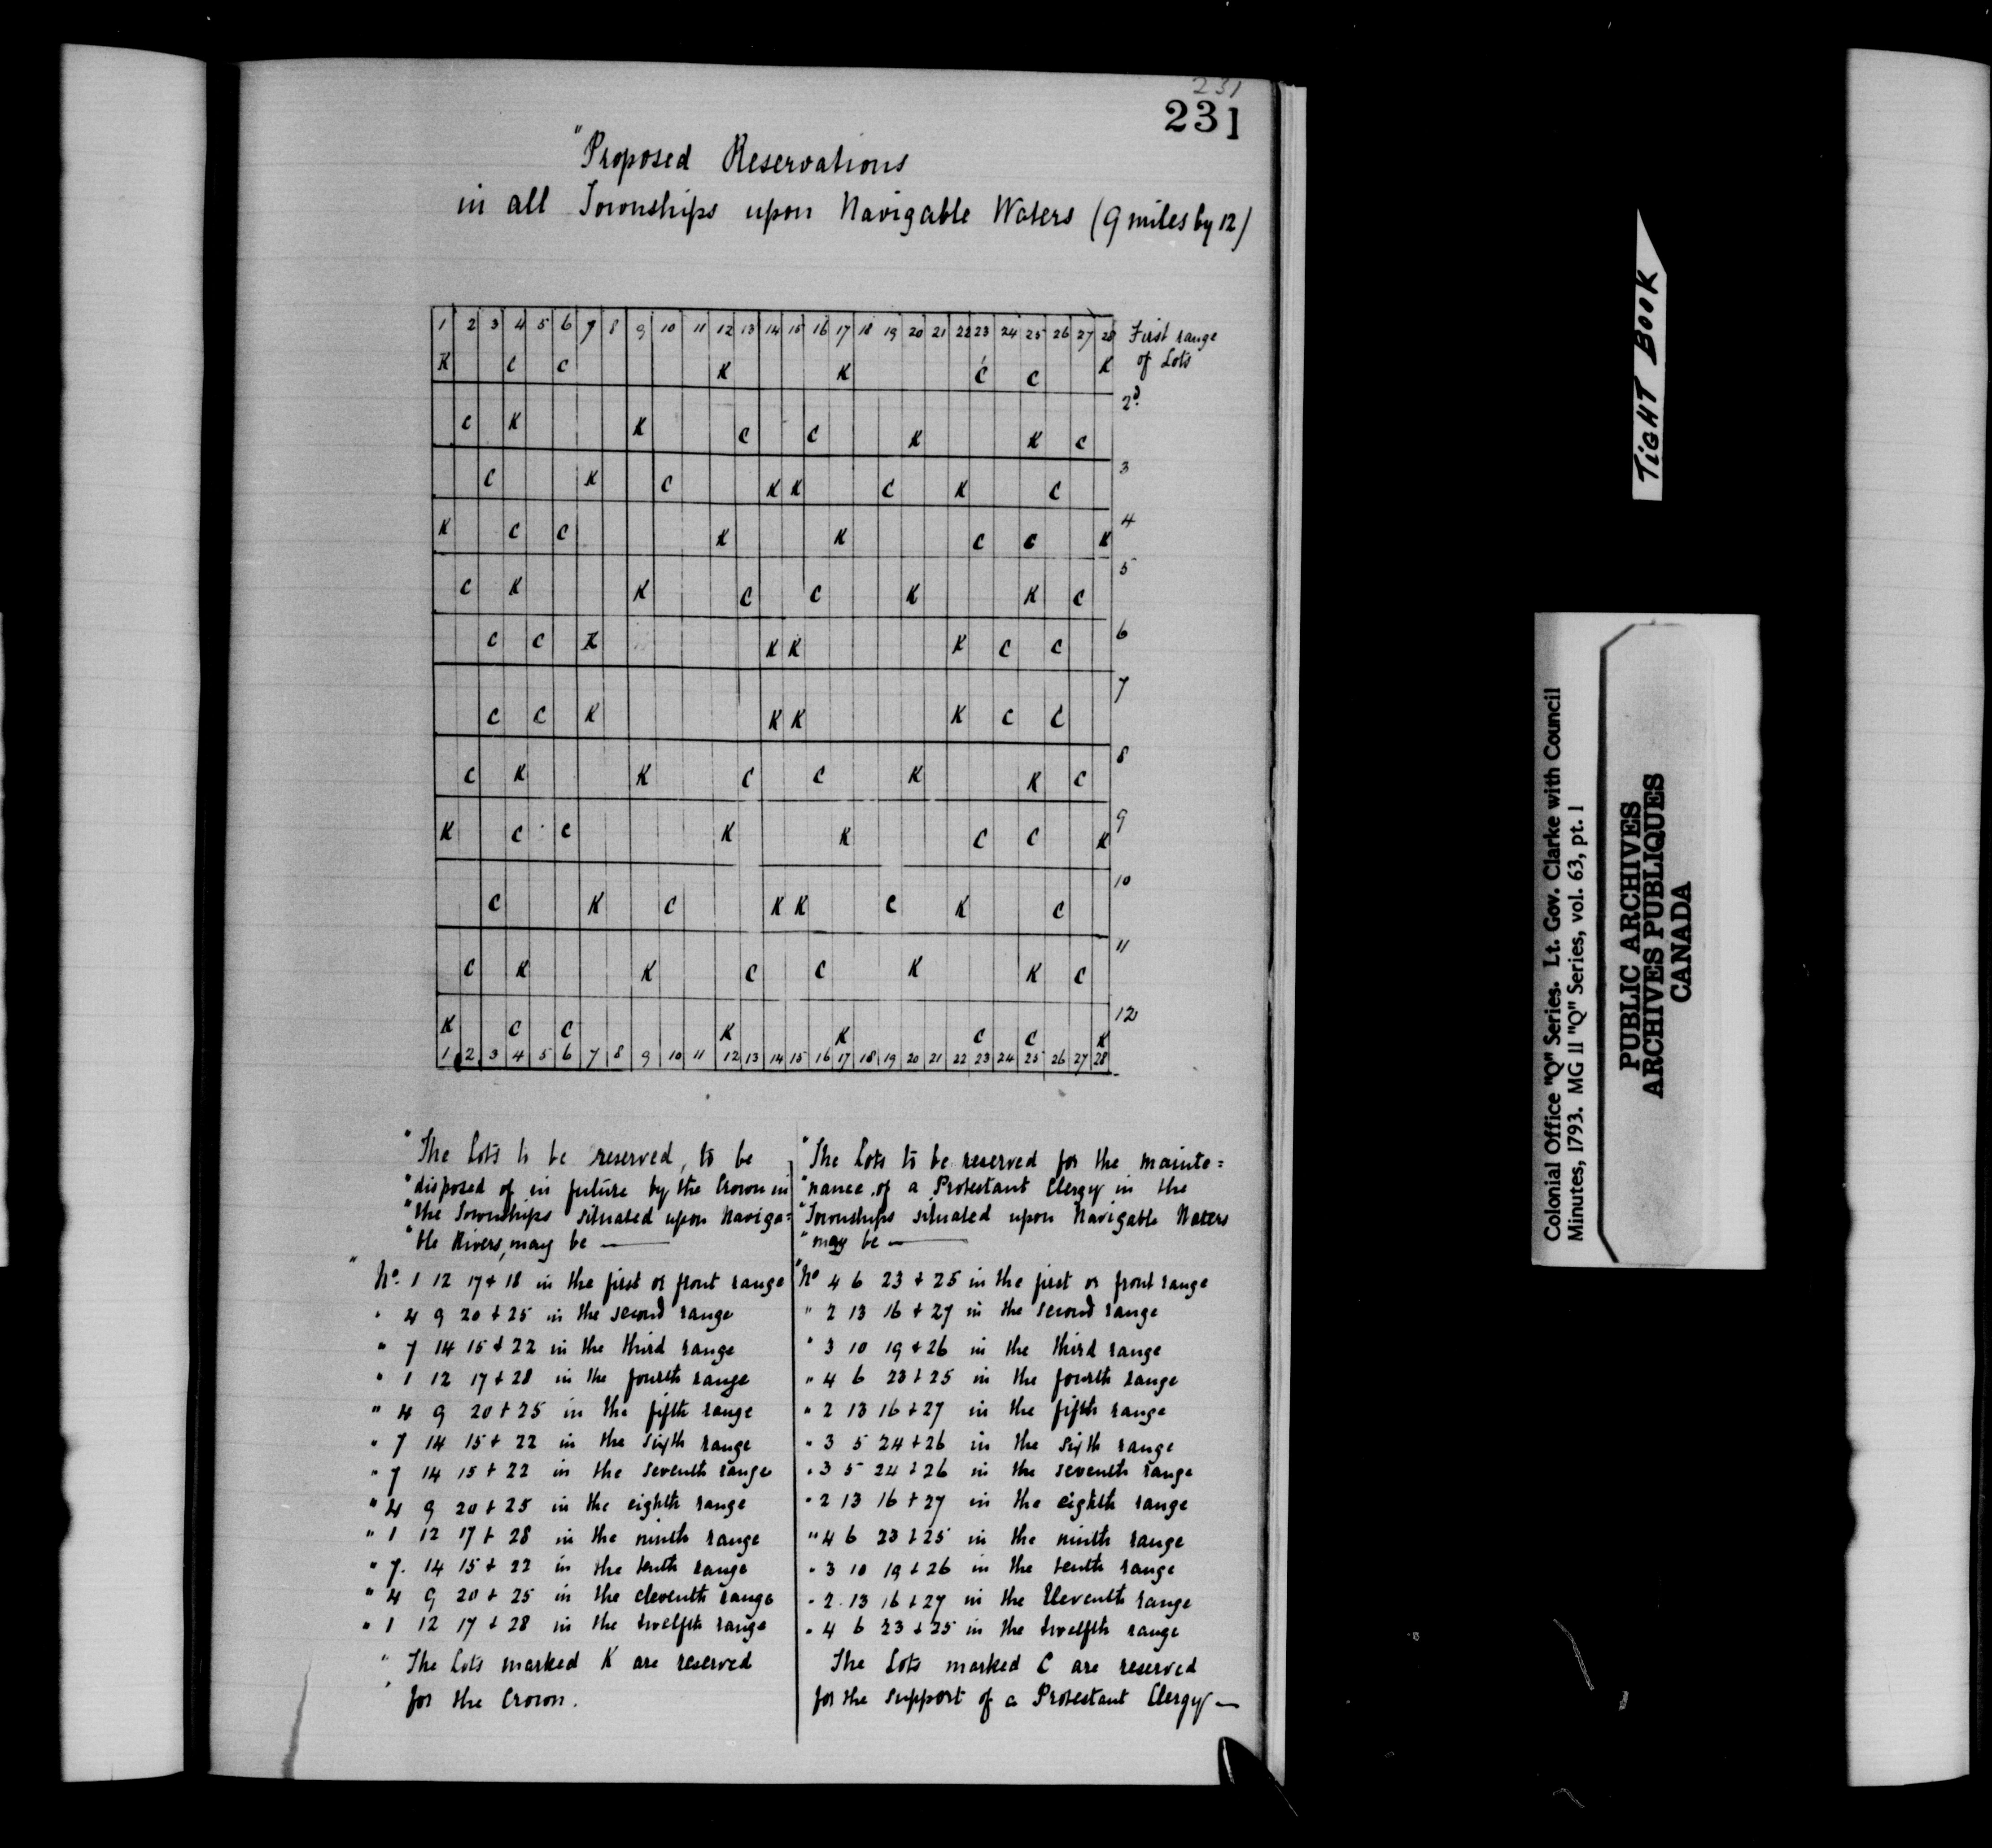 231
231
"Proposed Reservations
in all Townships upon Navigable Waters (9 miles by 12)
1 2 3 4 5 6 7 8 9 10 11 12 13 14 15 16 17 18 19 20 21 22 23 24 25 26 27 28 First range
of Lots
K C C K K C C K
2d.
C K K C C K K C
3
C K C K K C K C
4
K C C K K C C K
5
C K K C C K K C
6
C C K K K K C C
7
C C K K K K C C
8
C K K C C K K C
9
K C C K K C C K
10
C K C K K C K C
11
C K K C C K K C
12
K C C K K C C K
1 2 3 4 5 6 7 8 9 10 11 12 13 14 15 16 17 18 19 20 21 22 23 24 25 26 27 28
"The Lots to be reserved, to be
"disposed of in future by the Crown in
"the Townships situated upon Naviga=
"ble Rivers, may be —
"No. 1 12 17 + 18 in the first or front range
" 4 9 20 + 25 in the second range
" 7 14 15 + 22 in the third range
" 1 12 17 + 28 in the fourth range
" 4 9 20 + 25 in the fifth range
" 7 14 15 + 22 in the sixth range
" 7 14 15 + 22 in the seventh range
" 4 9 20 + 25 in the eighth range
" 1 12 17 + 28 in the ninth range
" 7. 14 15 + 22 in the tenth range
" 4 9 20 + 25 in the eleventh range
" 1 12 17 + 28 in the twelfth range
" The Lots marked K are reserved
' for the Crown.
"The Lots to be reserved for the mainte=
"nance of a Protestant Clergy in the
"Townships situated upon Navigable Waters
"may be —
"No 4 6 23 + 25 in the first or front range
" 2 13 16 + 27 in the second range
" 3 10 19 + 26 in the third range
" 4 6 23 + 25 in the fourth range
" 2 13 16 + 27 in the fifth range
" 3 5 24 + 26 in the sixth range
" 3 5 24 + 26 in the seventh range
" 2 13 16 + 27 in the eighth range
" 4 6 23 + 25 in the ninth range
" 3 10 19 + 26 in the tenth range
" 2. 13 16 + 27 in the Eleventh range
" 4 6 23 + 25 in the twelfth range
The Lots marked C are reserved
for the support of a Protestant Clergy —
TIGHT BOOK
Colonial Office "Q" Series. Lt. Gov. Clarke with Council
Minutes, 1793. MG 11 "Q" Series, vol. 63, pt. 1
PUBLIC ARCHIVES
ARCHIVES PUBLIQUES
CANADA